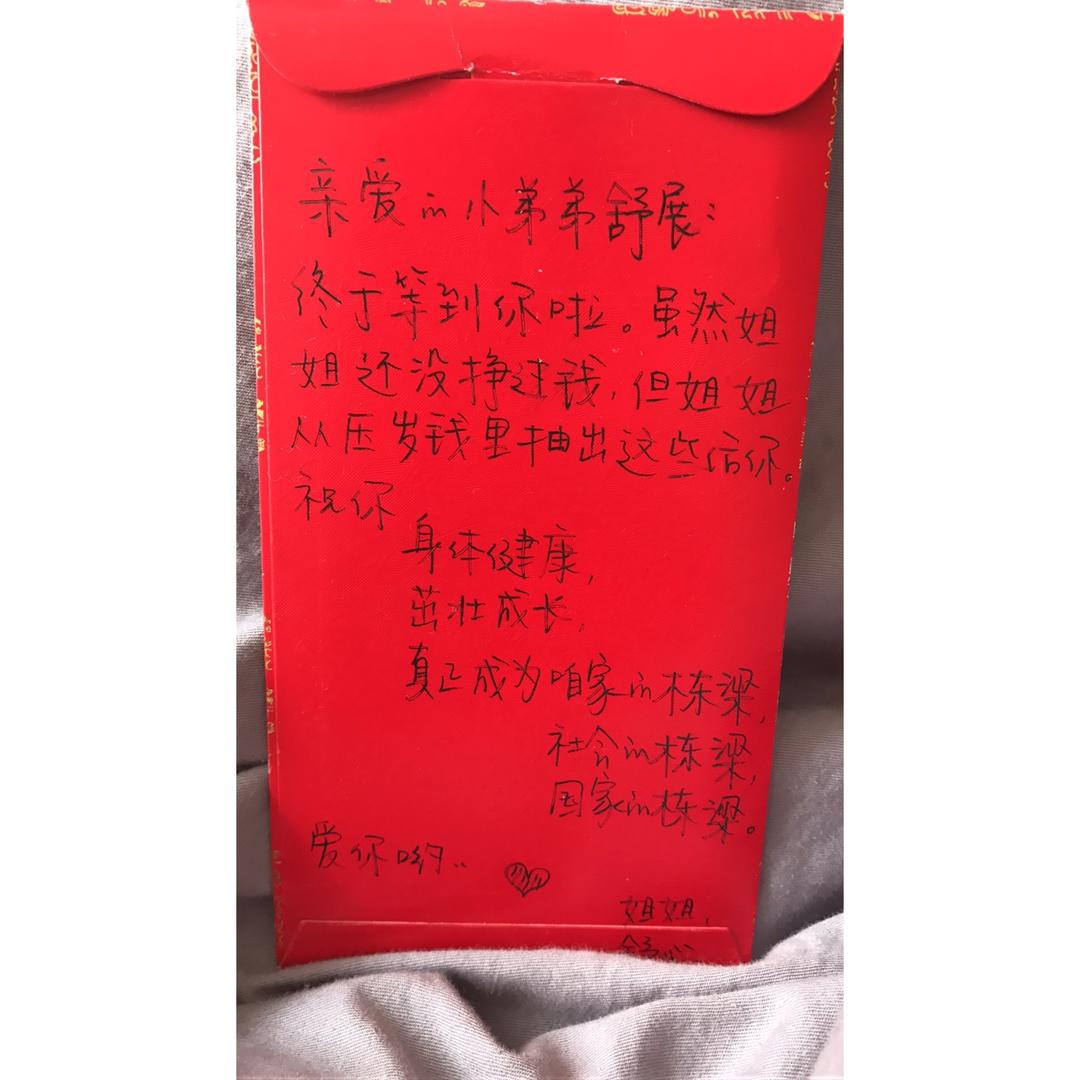 亲爱的小弟弟舒展：
终于等到你啦。虽然姐
姐还没挣过钱，但姐姐
从压岁钱里抽出这些给你。
祝你
身体健康，
茁壮成长，
真正成为咱家的栋梁，
社会的栋梁，
国家的栋梁。
爱你哟..
姐姐，
舒心